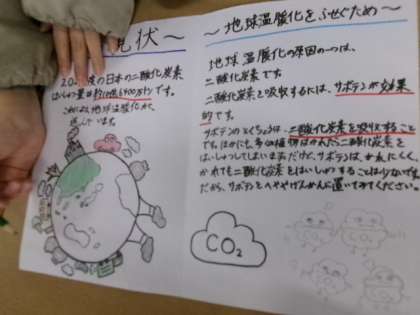 現状〜
の日本の二酸化炭素
はいしゅつ量は約10億6400万トンです。
これにより地球温暖化が
進んでいます。
〜地球温暖化をふせぐため〜
地球温暖化の原因の一つは、
二酸化炭素です。
二酸化炭素を吸収するには、サボテンが効果
的です。
サボテンのとくちょうは、二酸化炭素を吸収すること
です。ほかにも多くの植物はかれたら二酸化炭素を
はいしゅつしてしまいますだけど、サボテンは、かれにくく、
かれても二酸化炭素をはいしゅつすることは少ないです。
だから、サボテンをへややげんかんに置いてみてください。
CO2